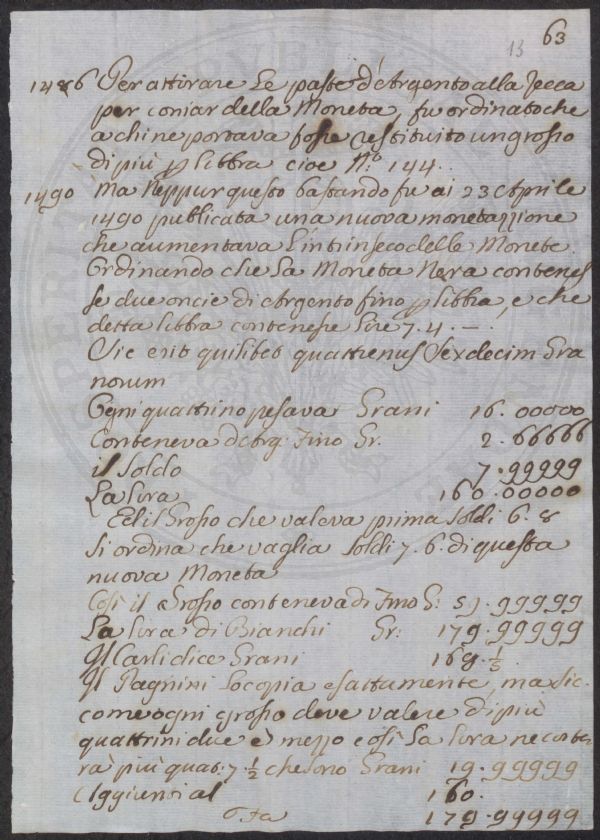 63
13
1486 Per attirare Le paste d'Argento alla Zecca
per coniar della Moneta, fu ordinato che
a chi ne portava fosse restituito un grosso
di più p libbra cioe N.º 144.
1490 Ma Neppur questo bastando fu ai 23 Aprile
1490 publicata una nuova monetazzione
che aumentava L'intrinseco delle Monete.
Ordinando che La Moneta Nera contenes
se due oncie di Argento fino p libbra, e che
detta libbra contenesse Lire 7. 4. —.
Sic erit quilibet quattrenus Sexdecim Gra
norum
Ogni quattrino pesava Grani 16. 00000
Conteneva d'Arg: Fino Gr. 2. 66666
il Soldo 7. 99999
La Lira 160. 00000
Ed il Grosso che valeva prima Soldi 6. 8
Si ordina che vaglia Soldi 7. 6. di questa
nuova Moneta
Così il Grosso conteneva di Fino G: 59. 99999
La Lira di Bianchi Gr: 179. 99999
Il Carli dice Grani 169. 1/5
Il Pagnini Lo copia esattamente, ma sic
come ogni grosso deve valere di più
quattrini due e mezzo così La Lira ne conter
rà più quat: 7 1/2 che sono Grani 19. 99999
Aggiunti al 160.
Fa 179. 99999